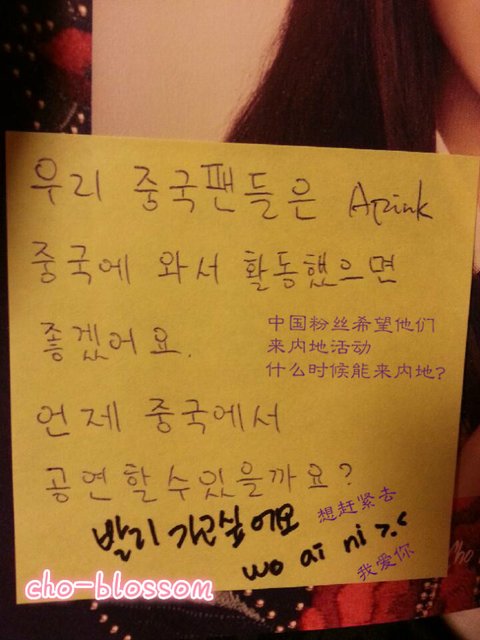 우리 중국팬들은 Apink
중국에 와서 활동했으면
좋겠어요.
中国粉丝希望他们
来内地活动
什么时候能来内地?
언제 중국에서
공연할수있을까요?
빨리 가고싶어요
想赶紧去
wo ai ni >.<
我爱你
cho-blossom